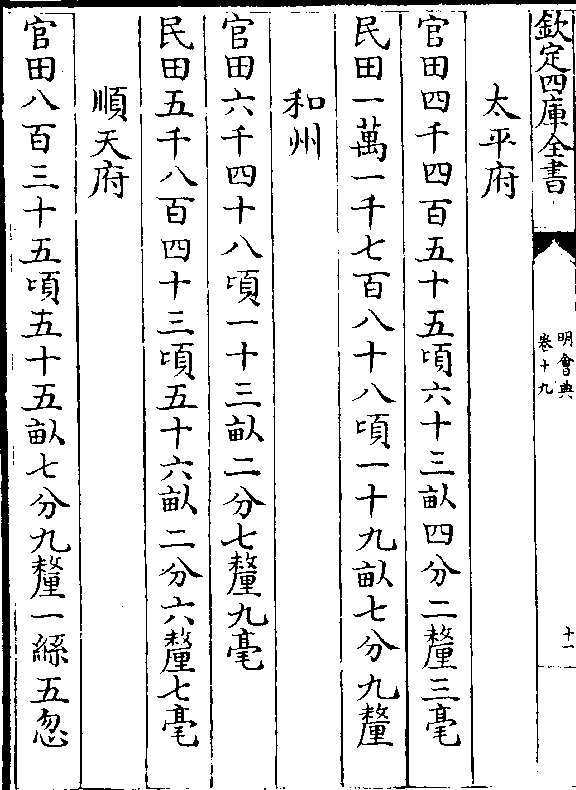 欽定四庫全書
明會典
卷十九
十一
太平府
官田四千四百五十五頃六十三畝四分二釐三毫
民田一萬一千七百八十八頃一十九畝七分九釐
和州
官田六千四十八頃一十三畝二分七釐九毫
民田五千八百四十三頃五十六畝二分六釐七毫
順天府
官田八百三十五頃五十五畝七分九釐一絲五忽